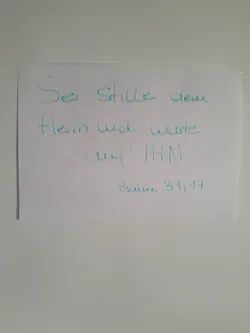 Sei Stille dem
Herrn und warte
auf IHN
37,17